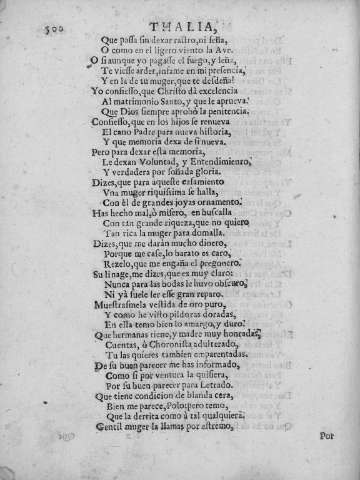 500 THALIA,
Que passa sin dexar rastro, ni seña,
O como en el ligero viento la Ave.
O si aunque yo pagasse el fuego, y leña,
Te viesse arder, infame en mi presencia,
Y en la de tu muger, que te desdeña!
Yo confiesso, que Christo dà excelencia
Al matrimonio Santo, y que le aprueva:
Que Dios siempre aprobò la penitencia.
Confiesso, que en los hijos se renueva
El cano Padre para nueva historia,
Y que memoria dexa de sì nueva.
Pero para dexar esta memoria,
Le dexan Voluntad, y Entendimiento,
Y verdadera por soñada gloria.
Dizes, que para aqueste casamiento
Vna muger riquissima se halla,
Con èl de grandes joyas ornamento.
Has hecho mal, ò misero, en buscalla
Con tan grande riqueza, que no quiero
Tan rica la muger para domalla.
Dizes, que me daràn mucho dinero,
Porque me case, lo barato es caro,
Rezelo, que me engaña el pregonero.
Su linage, me dizes, que es muy claro:
Nunca para las bodas le huvo obscuro,
Ni yà suele ser esse gran reparo.
Muestrasmela vestida de oro puro,
Y como he visto pildoras doradas,
En ella temo bien lo amargo, y duro.
Que hermanas tiene, y madre muy honradas,
Cuentas, ò Choronista adulterado,
Tu las quieres tambien emparentadas.
De su buen parecer me has informado,
Como si por ventura la quisiera,
Por su buen parecer para Letrado.
Que tiene condicion de blanda cera,
Bien me parece, Polo; pero temo,
Que la derrita como à tal qualquiera.
Gentil muger la llamas por estremo,
Por